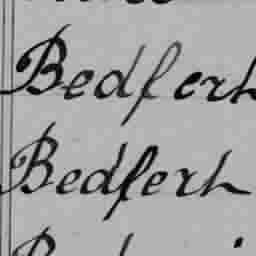 Bedferh
Bedferh